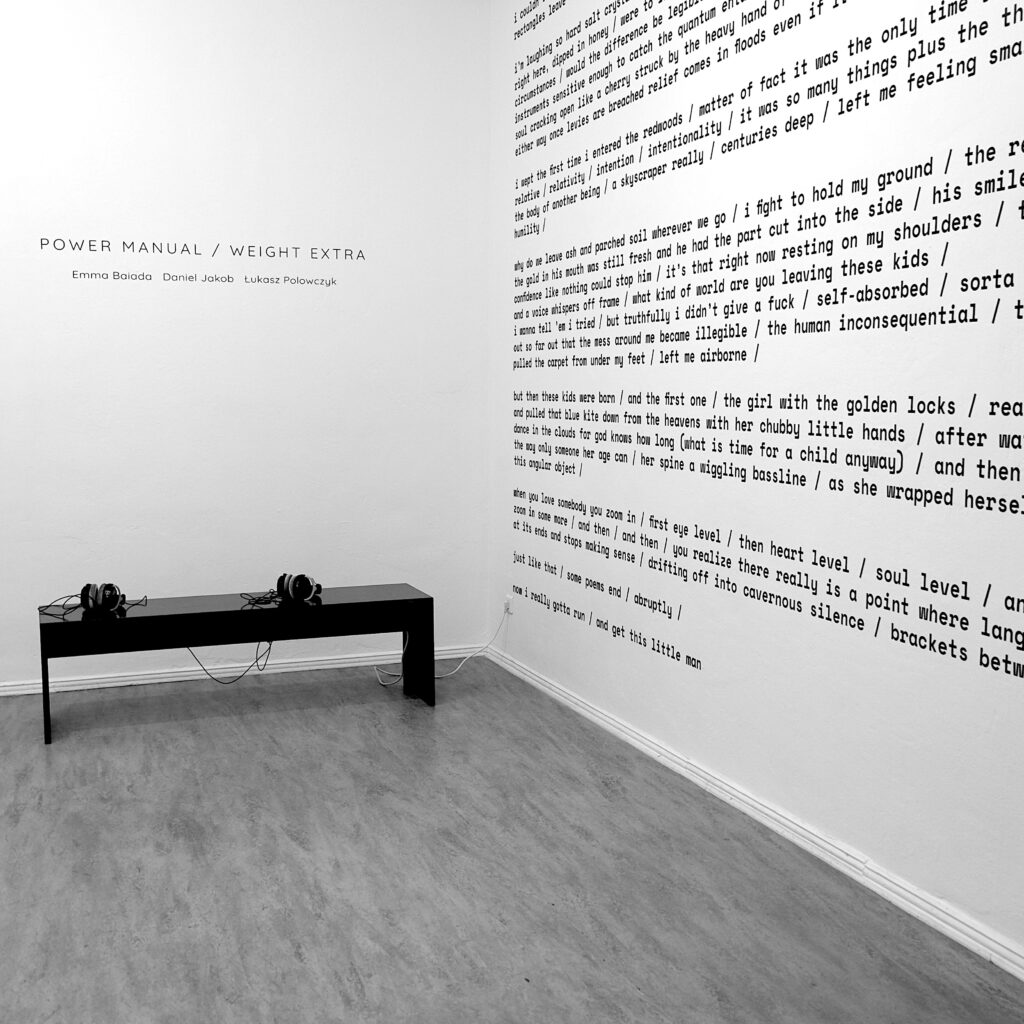 POWER MANUAL / WEIGHT EXTRA
Emma Baiada Daniel Jakob Łukasz Polowczyk
i couldn't
rectangles leave
i'm laughing so hard salt
right here, dipped in honey / were to
circumstances / would the difference be
instruments sensitive enough to catch the quantum
soul cracking open like a cherry struck by the heavy hand of
either way once levies are breached relief comes in floods even if
i wept the first time i entered the redwoods / matter of fact it was the only time
relative / relativity / intention / intentionality / it was so many things plus the
the body of another being / a skyscraper really / centuries deep / left me feeling
humility /
why do we leave ash and parched soil wherever we go / i fight to hold my ground / the
the gold in his mouth was still fresh and he had the part cut into the side / his smile
confidence like nothing could stop him / it's that right now resting on my shoulders /
and a voice whispers off frame / what kind of world are you leaving these kids /
i wanna tell 'em i tried / but truthfully i didn't give a fuck / self-absorbed / sorta
out so far out that the mess around me became illegible / the human inconsequential /
pulled the carpet from under my feet / left me airborne /
but then these kids were born / and the first one / the girl with the golden locks /
and pulled that blue kite down from the heavens with her chubby little hands / after
dance in the clouds for god knows how long (what is time for a child anyway) / and then
the way only someone her age can / her spine a wiggling bassline / as she wrapped
this angular object /
when you love somebody you zoom in / first eye level / then heart level / soul level /
zoom in some more / and then / and then / you realize there really is a point where
at its ends and stops making sense / drifting off into cavernous silence / brackets
just like that / some poems end / abruptly /
now i really gotta run / and get this little man